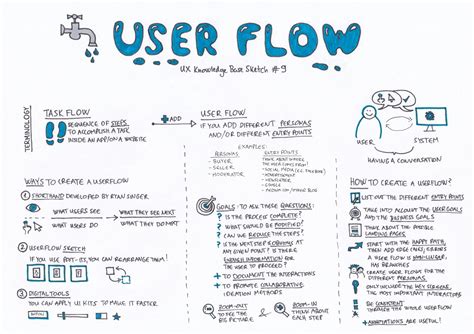 USER FLOW
UX Knowledge Base Sketch #9
TERMINOLOGY
TASK FLOW
SEQUENCE OF STEPS
TO ACCOMPLISH A TASK
INSIDE AN APP/ON A WEBSITE
ADD
USER FLOW
IF YOU ADD DIFFERENT PERSONAS
AND/OR DIFFERENT ENTRY POINTS
EXAMPLES:
PERSONAS
- BUYER
- SELLER
- MODERATOR
ENTRY POINTS
THINK ABOUT WHERE
THE USER COMES FROM!
- SOCIAL MEDIA (E.G. FACEBOOK)
- ADVERTISEMENT
- NEWSLETTER
- GOOGLE
USER
SYSTEM
HAVING A CONVERSATION
WAYS TO CREATE A USERFLOW
1 SHORTHAND DEVELOPED BY RYAN SINGER
WHAT USERS SEE
WHAT USERS DO
WHAT THEY SEE NEXT
WHAT THEY DO NEXT
2 USERFLOW SKETCH
IF YOU USE POST-ITS, YOU CAN REARRANGE THEM!
3 DIGITAL TOOLS
YOU CAN APPLY UI KITS TO MAKE IT FASTER
GOALS: TO ASK THESE QUESTIONS:
? IS THE PROCESS COMPLETE?
? WHAT SHOULD BE MODIFIED?
? CAN WE REDUCE THE STEPS?
? IS THE NEXT STEP OBVIOUS AT
ANY GIVEN POINT? IS THERE
ENOUGH INFORMATION FOR
THE USER TO PROCEED?
→ TO DOCUMENT THE INTERACTIONS
→ TO PROMOTE COLLABORATIVE
IDEATION METHODS
ZOOM-OUT
TO SEE THE
BIG PICTURE
&
ZOOM-IN
THINK ABOUT
EACH STEP
HOW TO CREATE A USERFLOW?
LIST ALL THE DIFFERENT ENTRY POINTS
TAKE INTO ACCOUNT THE USER GOALS
AND THE BUSINESS GOALS
THINK ABOUT THE POSSIBLE
LANDING PAGES
START WITH THE HAPPY PATH,
THEN ADD EDGE CASES, ERRORS
A USER FLOW IS NON-LINEAR,
HAS BRANCHES
CREATE USER FLOWS FOR THE
DIFFERENT PERSONAS
ONLY INCLUDE THE KEY SCREENS,
THE MOST IMPORTANT INTERACTIONS
BE CONSISTENT
THROUGH THE WHOLE USER FLOW
ANNOTATIONS ARE USEFUL!